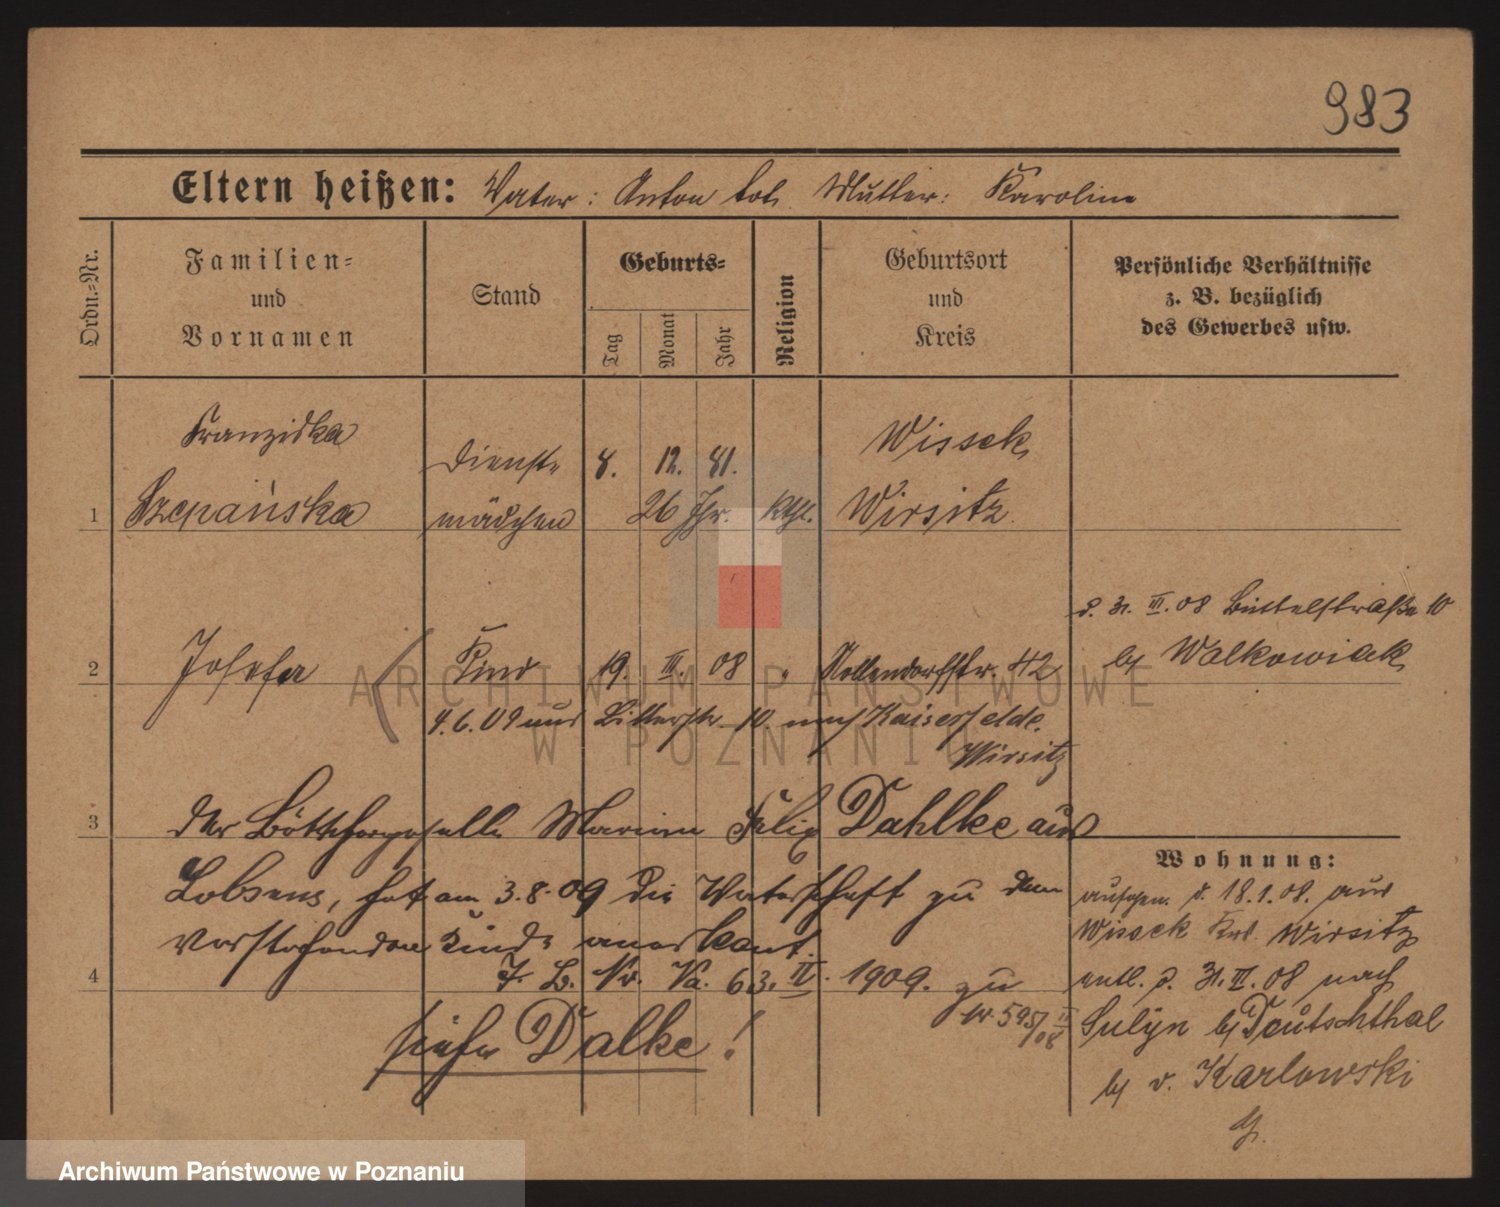 983
Eltern heißen: Vater: Anton tot. Mutter: Karoline
Ordn.-Nr.
Familien-
und
Vornamen
Stand
Geburts-
Tag
Monat
Jahr
Religion
Geburtsort
und
Kreis
Persönliche Verhältnisse
z. B. bezüglich
des Gewerbes usw.
Franziska
Dienst- 8. 12. 81. Wissek
1 Szepańska mädchen 26 Jhr. kth. Wirsitz
d. 31. III. 08 Büttelstraße 10
2 Josefa Kind 19. III. 08 " Nollendorfstr. 42
bei Walkowiak
4.6.09 nach Kaisersfelde.
Wirsitz
3 Der Böttchergeselle Marian Felix Dahlke aus
Lobsens, hat am 3.8.09 die Vaterschaft zu dem
vorstehenden Kinde anerkannt.
4 J. B. Nr. Va. 63. IV. 1909. zu
Nr. 595/08
siehe Dalke!
Wohnung:
aufgen. d. 18.1.08. aus
Wissek Krs. Wirsitz
entl. d. 31. III. 08 nach
bei Teutschthal
b/ v. Karlowski
ARCHIWUM PAŃSTWOWE
W POZNANIU
Archiwum Państwowe w Poznaniu